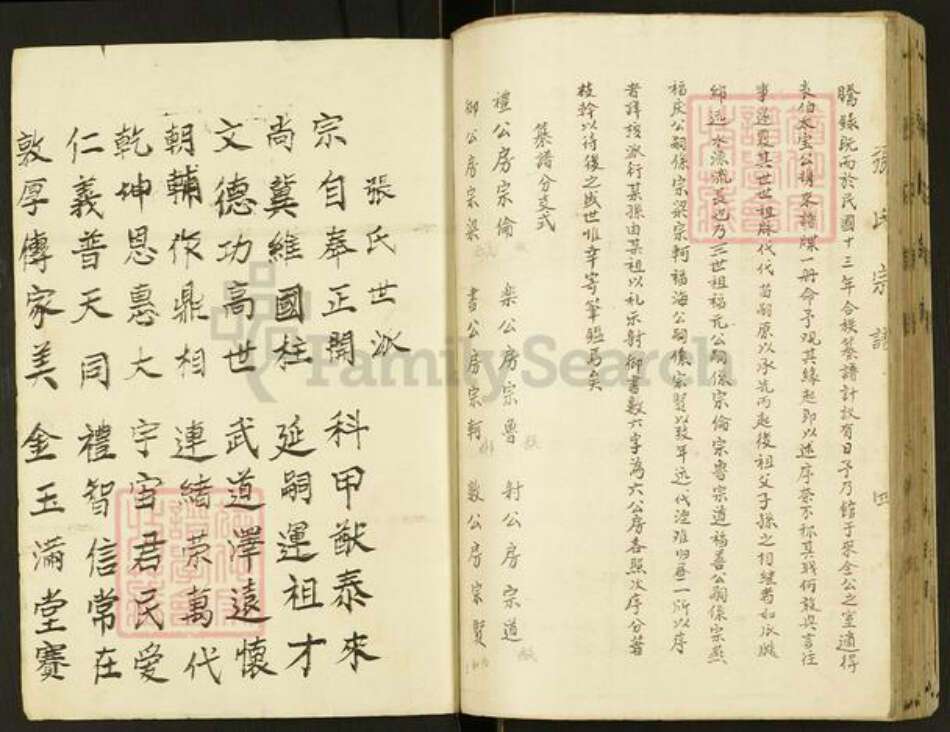 張氏宗譜 四
謄錄既而於民國十三年合族纂譜計議有日予乃館于來金公之室適得
表伯本宝公稱眾譜牒一冊命予观其緣起即以述序奈不称其職何敢與言注
事遂覆其世世祖脉代代苗嗣原以承先而起後祖父子孫之相继焉如瓜瓞
綿远水源流長也乃三世祖福元公嗣係宗倫宗魯宗道福善公嗣係宗
福庆公嗣係宗梁宗軻福海公嗣係宗賢以致年远代湮难归一所以序
者詳核派行某孫由某祖以礼乐射御書数六字為六公房各照次序分著
枝幹以待後之盛世唯幸寄筆驅焉矣
纂譜分支式
禮公房宗倫 樂公房宗魯 射公房宗道
御公房宗梁 書公房宗軻 數公房宗賢
張氏世派
宗自奉正開 科甲猷泰來
尚冀維國柱 延嗣運祖才
文德功高世 武道澤遠懷
朝輔作鼎相 連緒荣萬代
乾坤恩惠大 宇宙君民愛
仁義普天同 禮智信常在
敦厚傳家美 金玉滿堂賽
FamilySearch